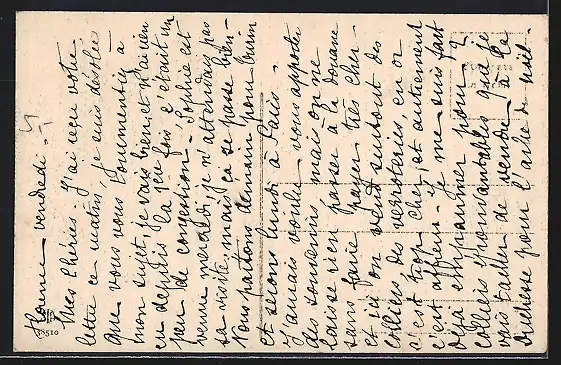 Rome vendredi -
Mes Chéries J'ai reçu votre
lettre ce matin, je suis désolée
que vous vous tourmentiez à
mon sujet, je vais bien, et n'ai rien
eu depuis la fois c'était un
peu de congestion - Sophie est
venue mercredi, je n'attendais pas
sa visite, mais ça se passe bien -
Nous partons demain pour Turin
et serons lundi à Paris -
J'aurais voulu vous apporter
des souvenirs mais on ne
laisse rien passer à la douane
sans faire payer très cher -
et ici on vend surtout des
colliers, des verroteries, en or
c'est trop cher, et autrement
c'est affreux - Je me suis fait
déjà empaumer pour 2
colliers épouvantables que je
vais tâcher de vendre à la
Duchesse pour l'achat de
78510